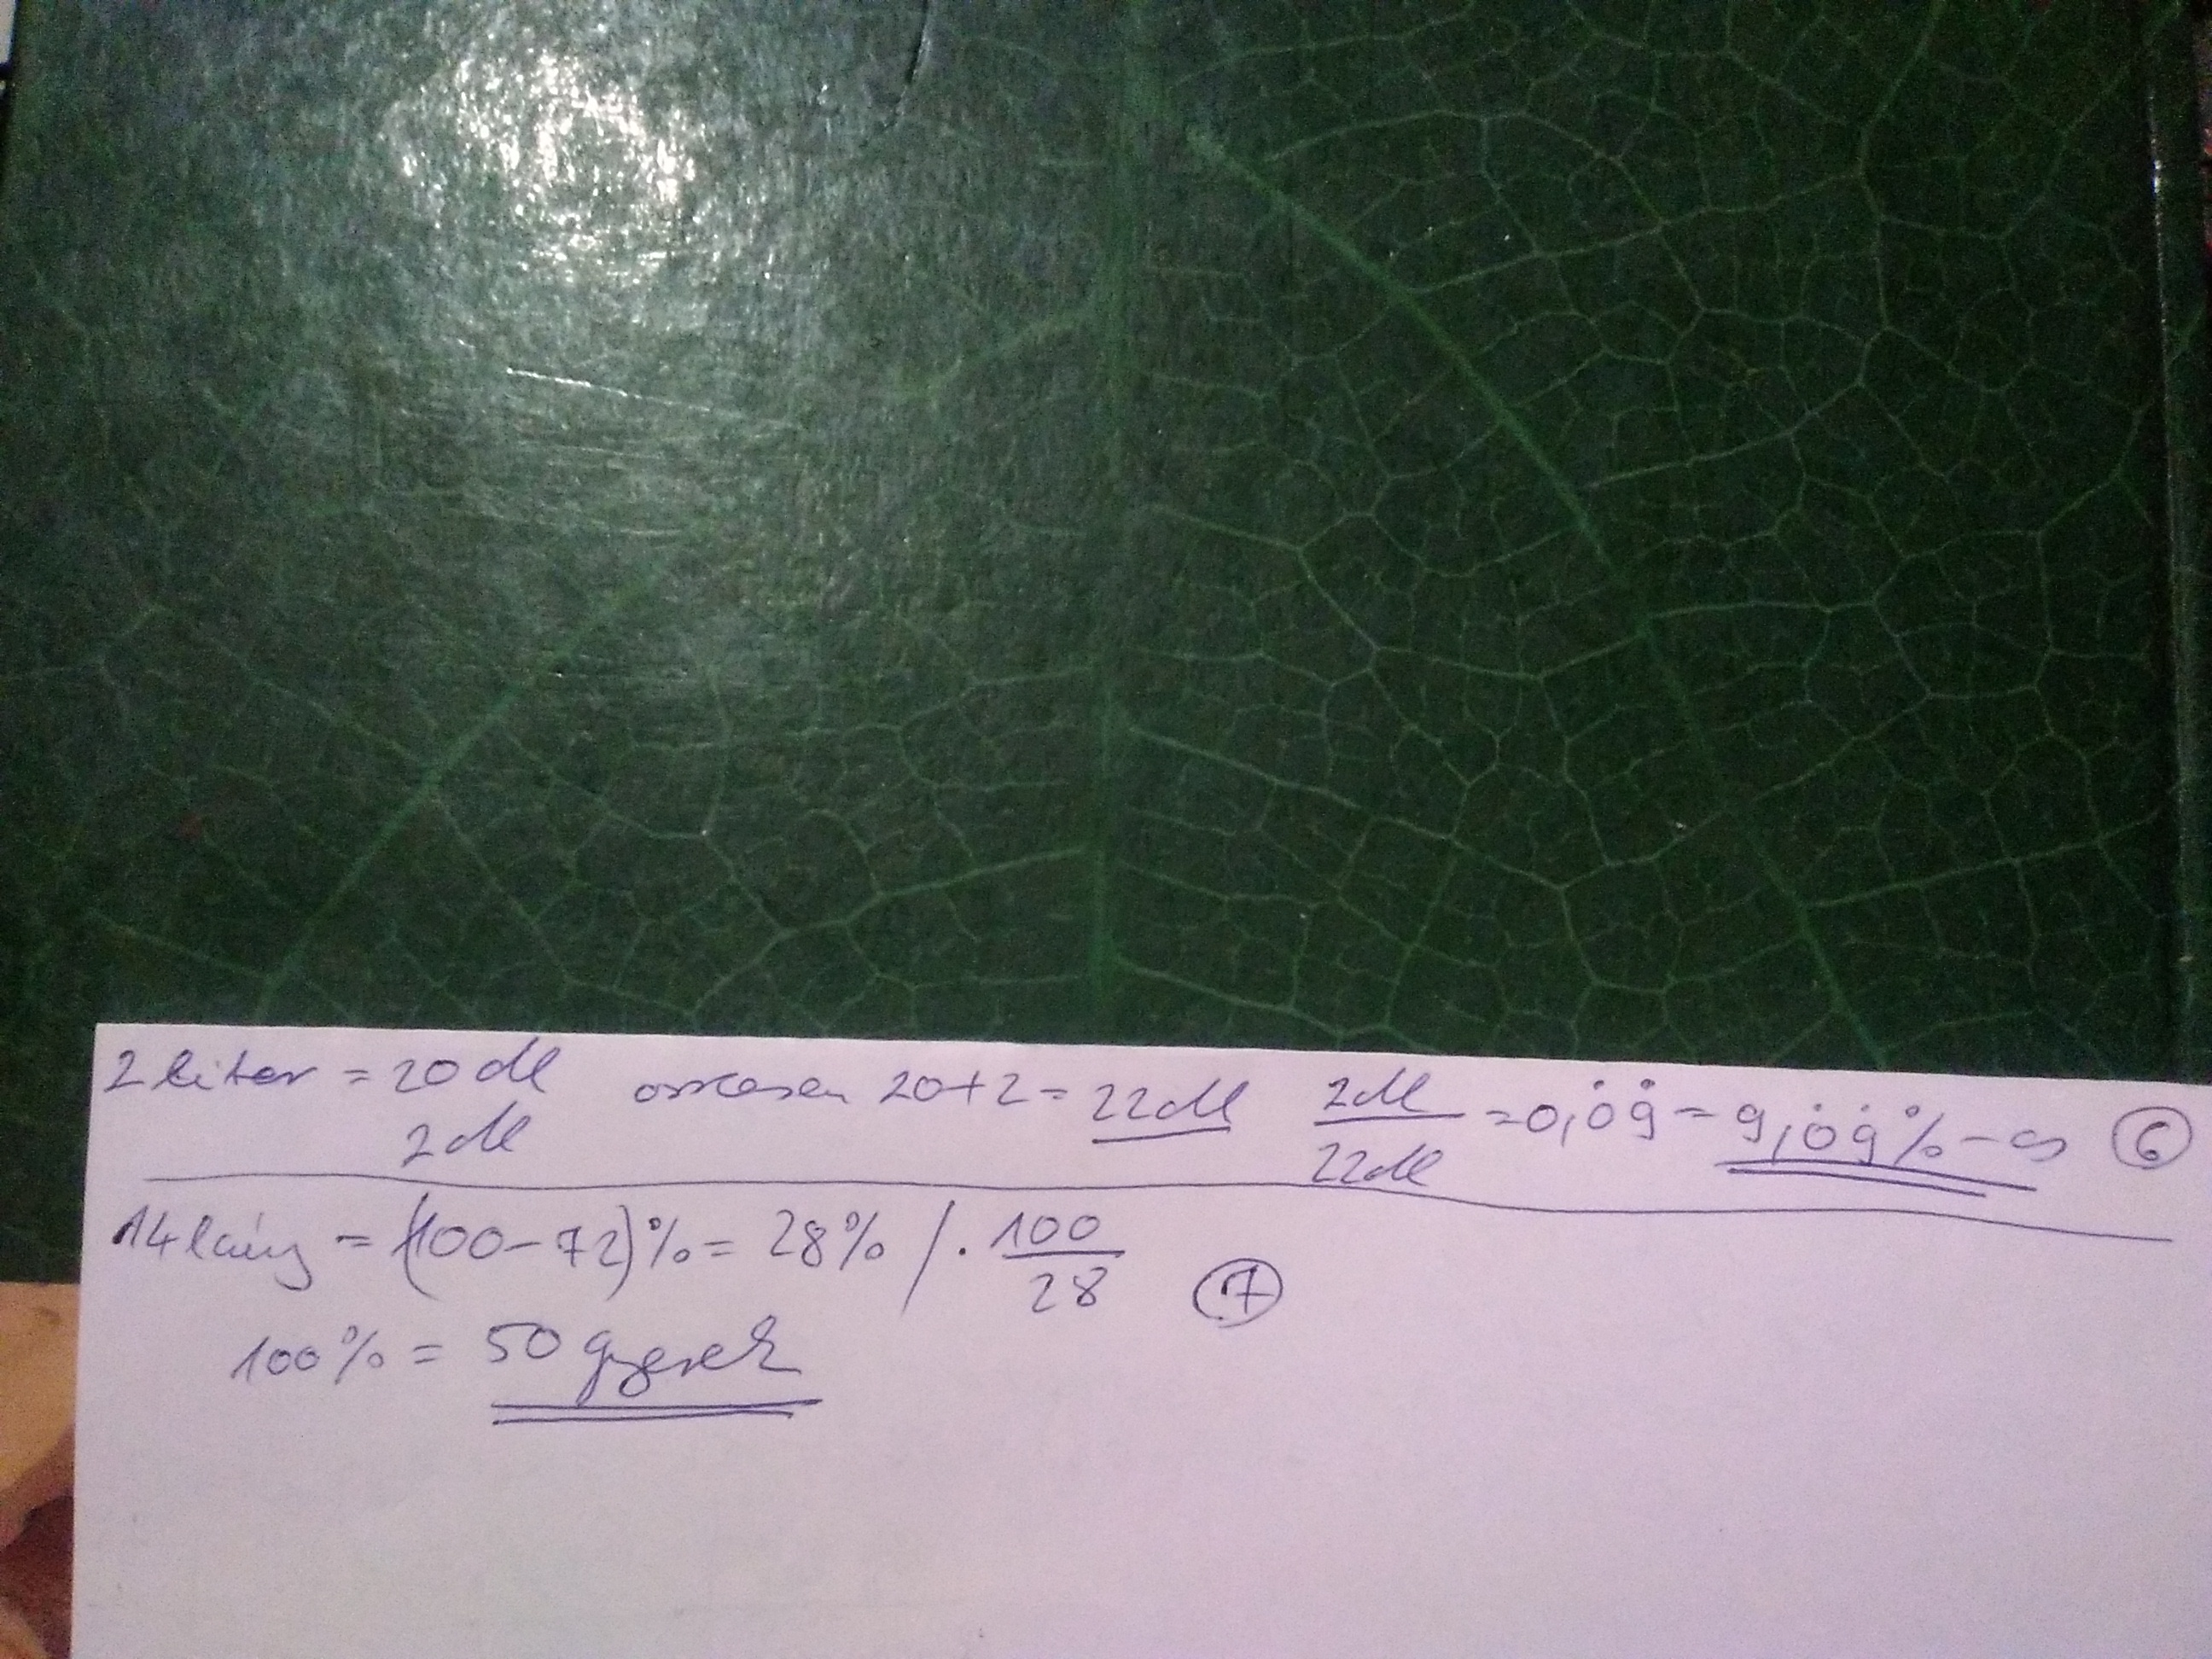 2 liter = 20 dl összesen 20+2 = 22 dl 2dl/22dl = 0,0̇9̇ = 9,0̇9̇%-os 6
2 dl
14 lány = (100-72)% = 28% / · 100/28
100% = 50 gyerek 7